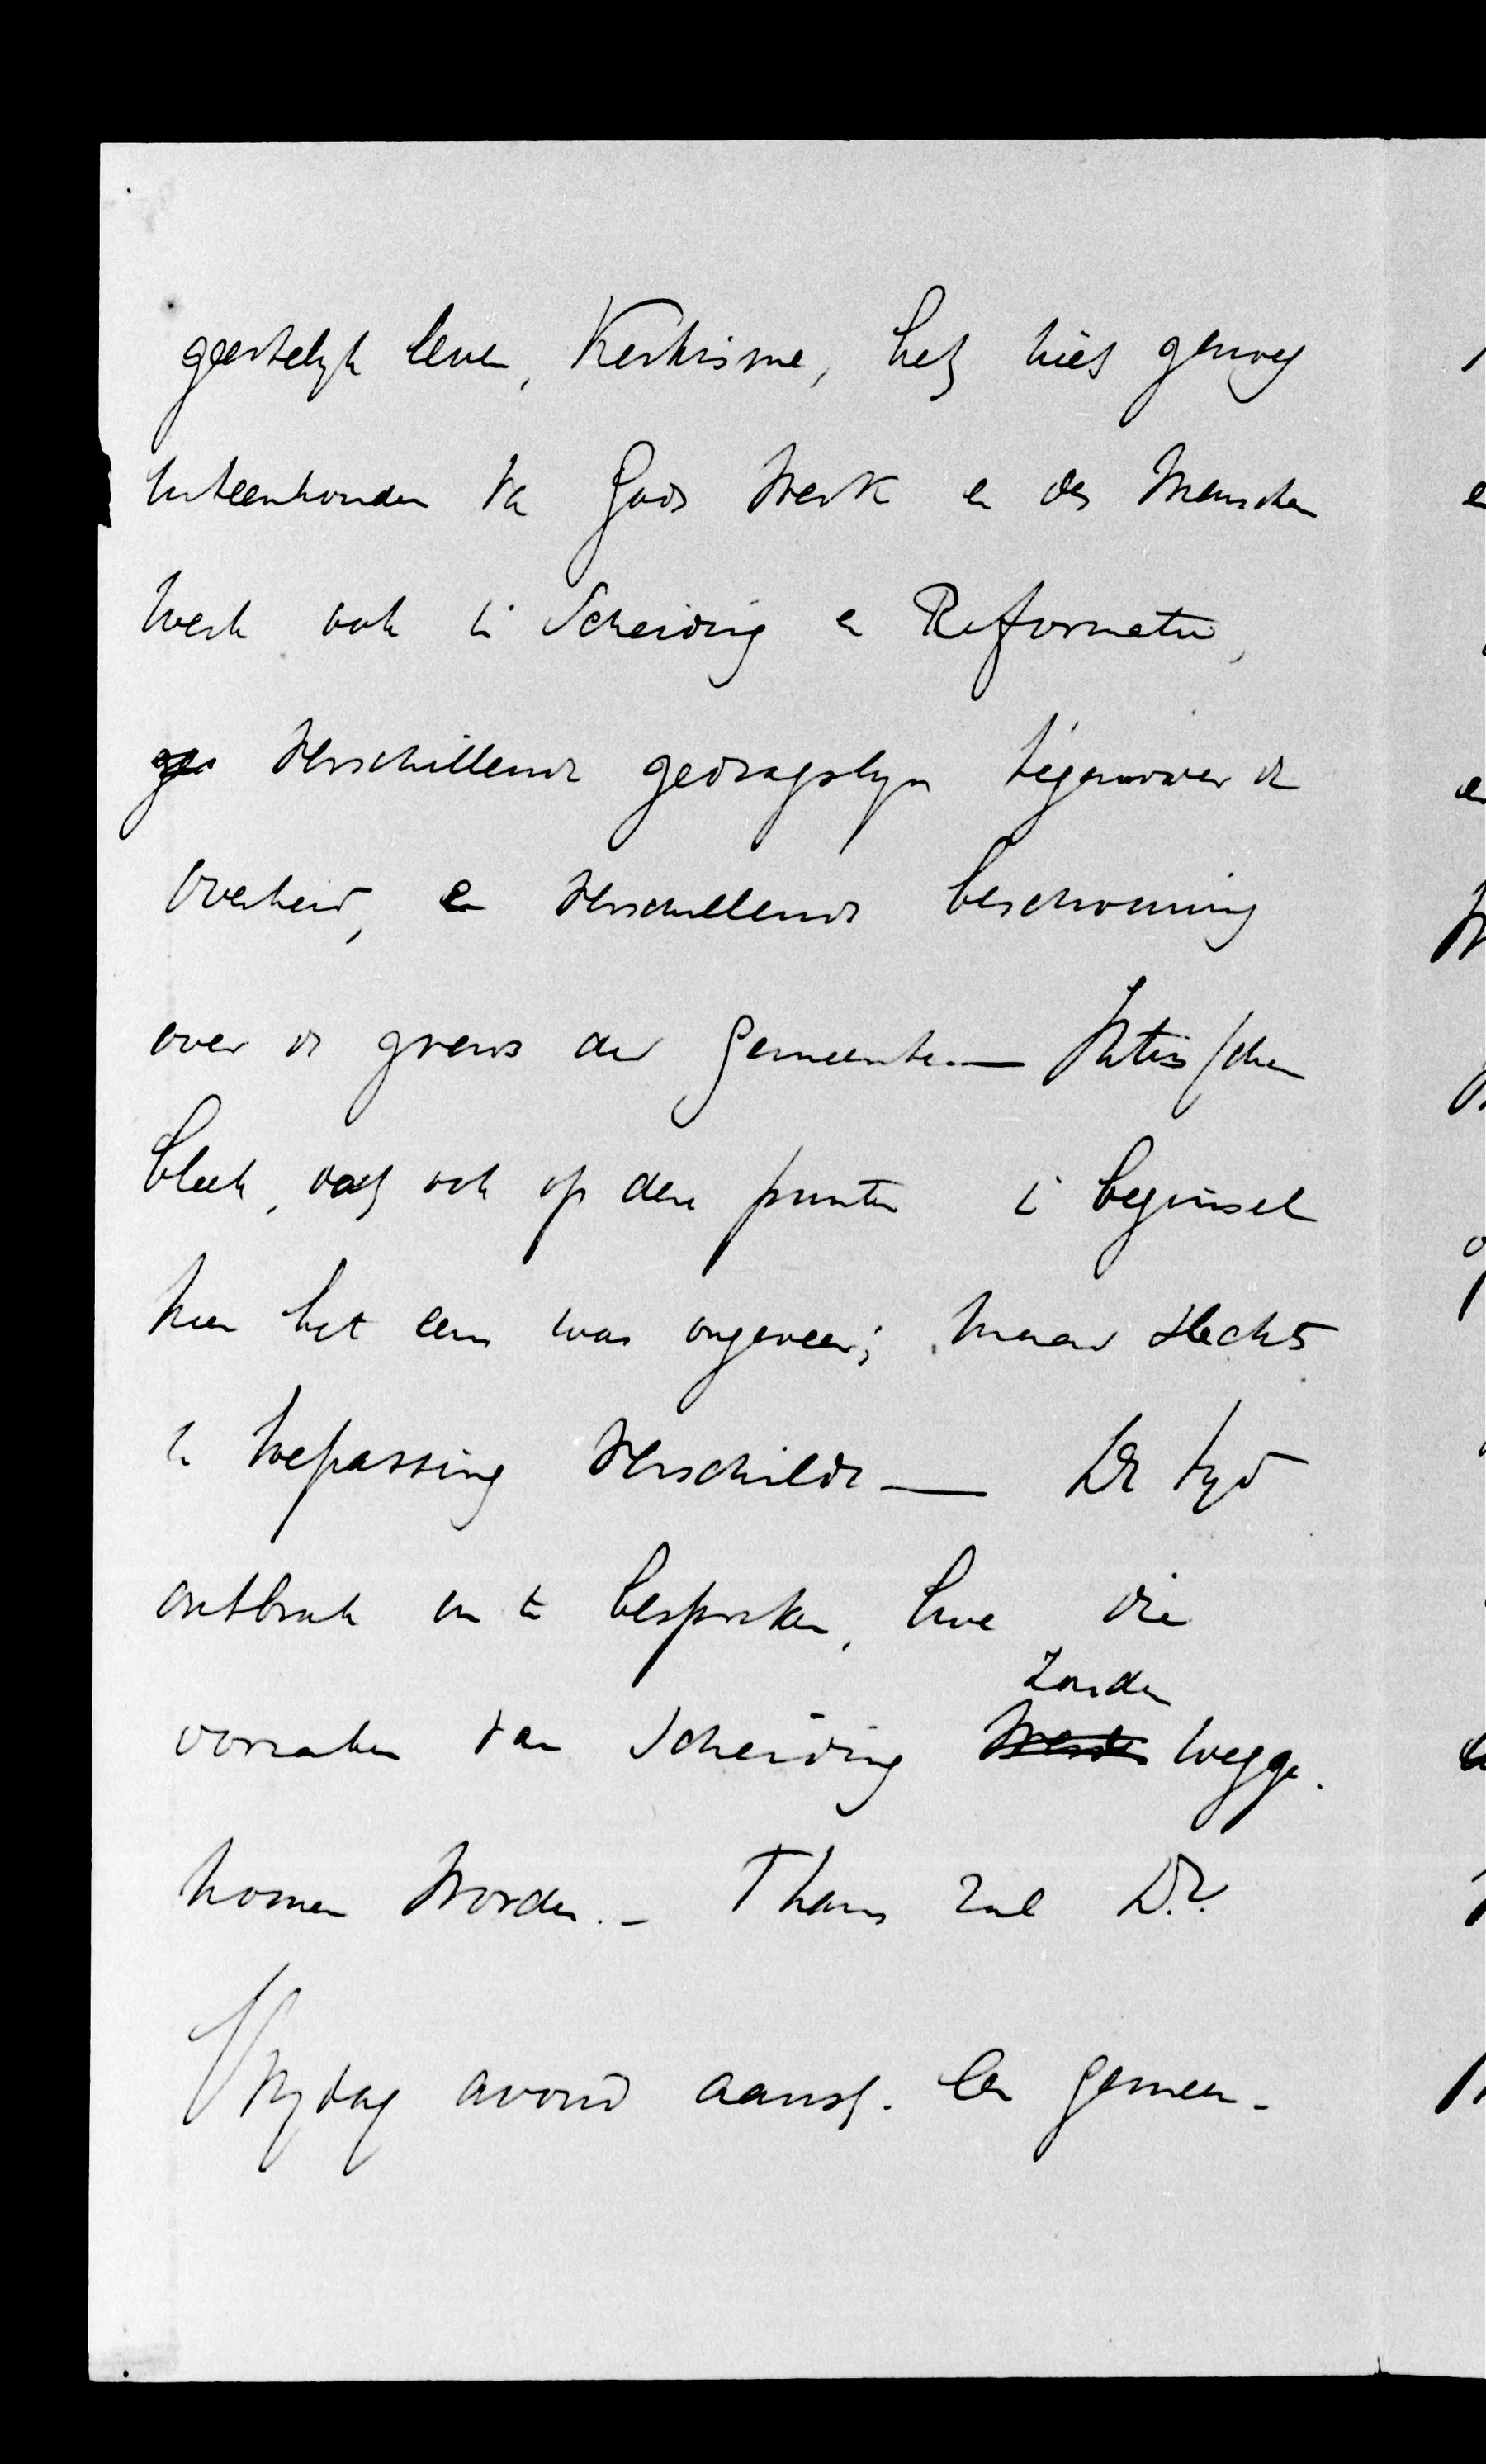 geestelijk leven, Kerkisme, het niet genoeg
uiteenhouden van Gods werk en des Menschen
werk ook in Scheiding en Reformatie,
verschillende gedragslijn tegenover de
Overheid, en verschillende beschouwing
over de grens der gemeente. —
bleek, dat ook op deze punten in beginsel
men het eens was ongeveer; maar slechts
in toepassing verschilde — De tijd
ontbrak om te bespreken, hoe die
zouden
oorzaken van Scheiding wegge-
nomen worden. — Thans zal D.V.
Vrijdag avond aanst. een gemeen-